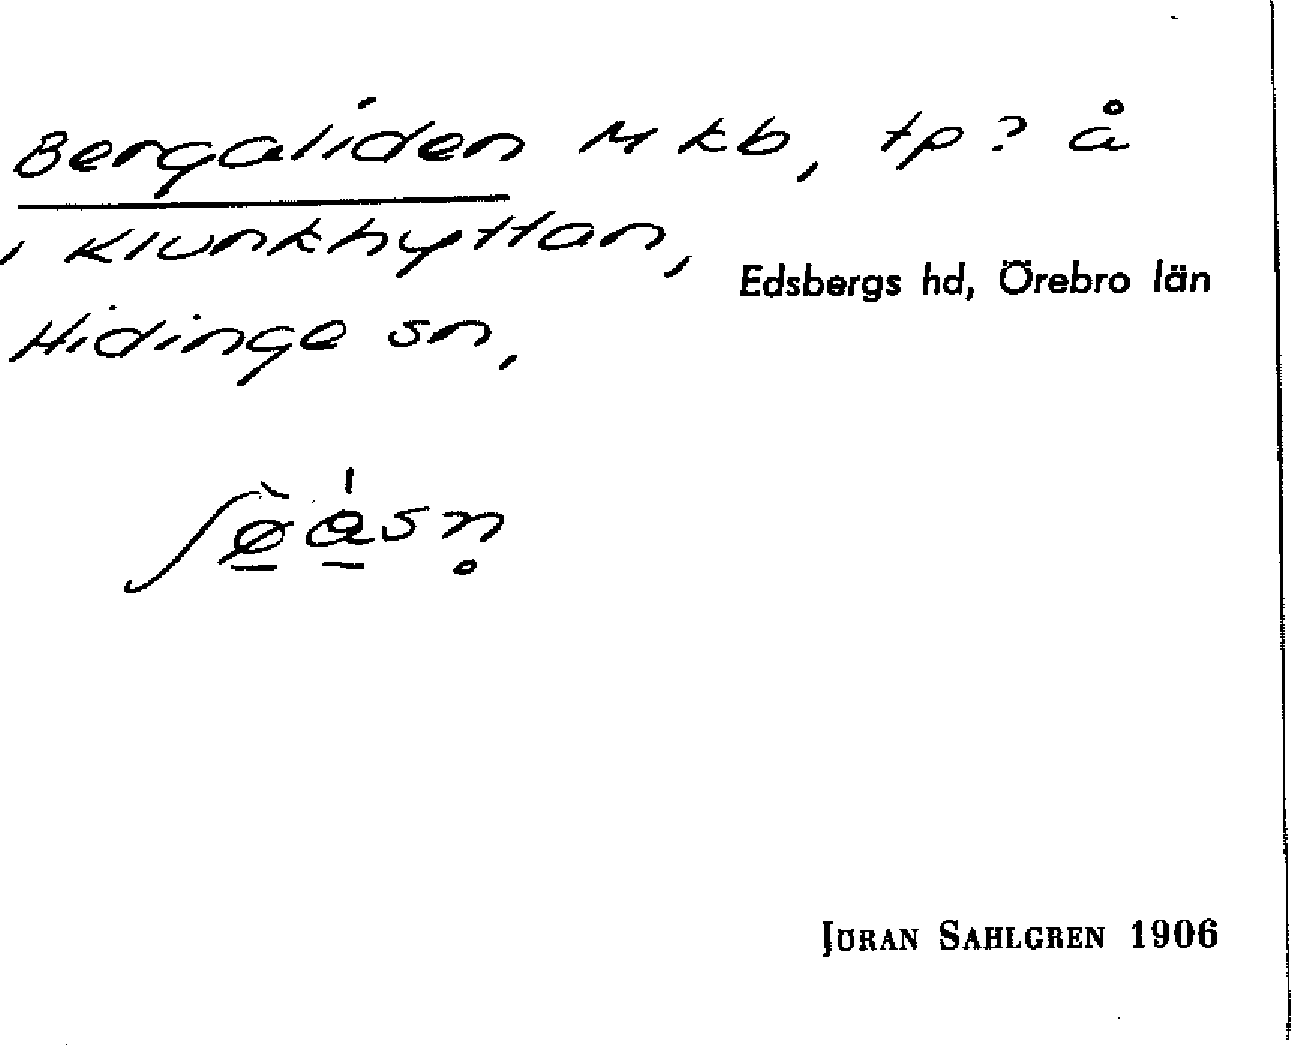 Bergaliden M kb, tp? å
, Klunkhyttan,
Edsbergs hd, Örebro län
Hidinge sn,
JÖRAN SAHLGREN 1906